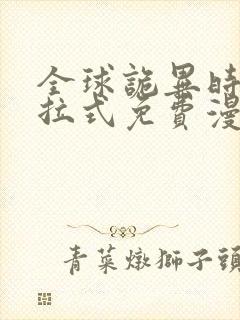 全球詭異時
拉式免費漫
青菜燉獅子頭